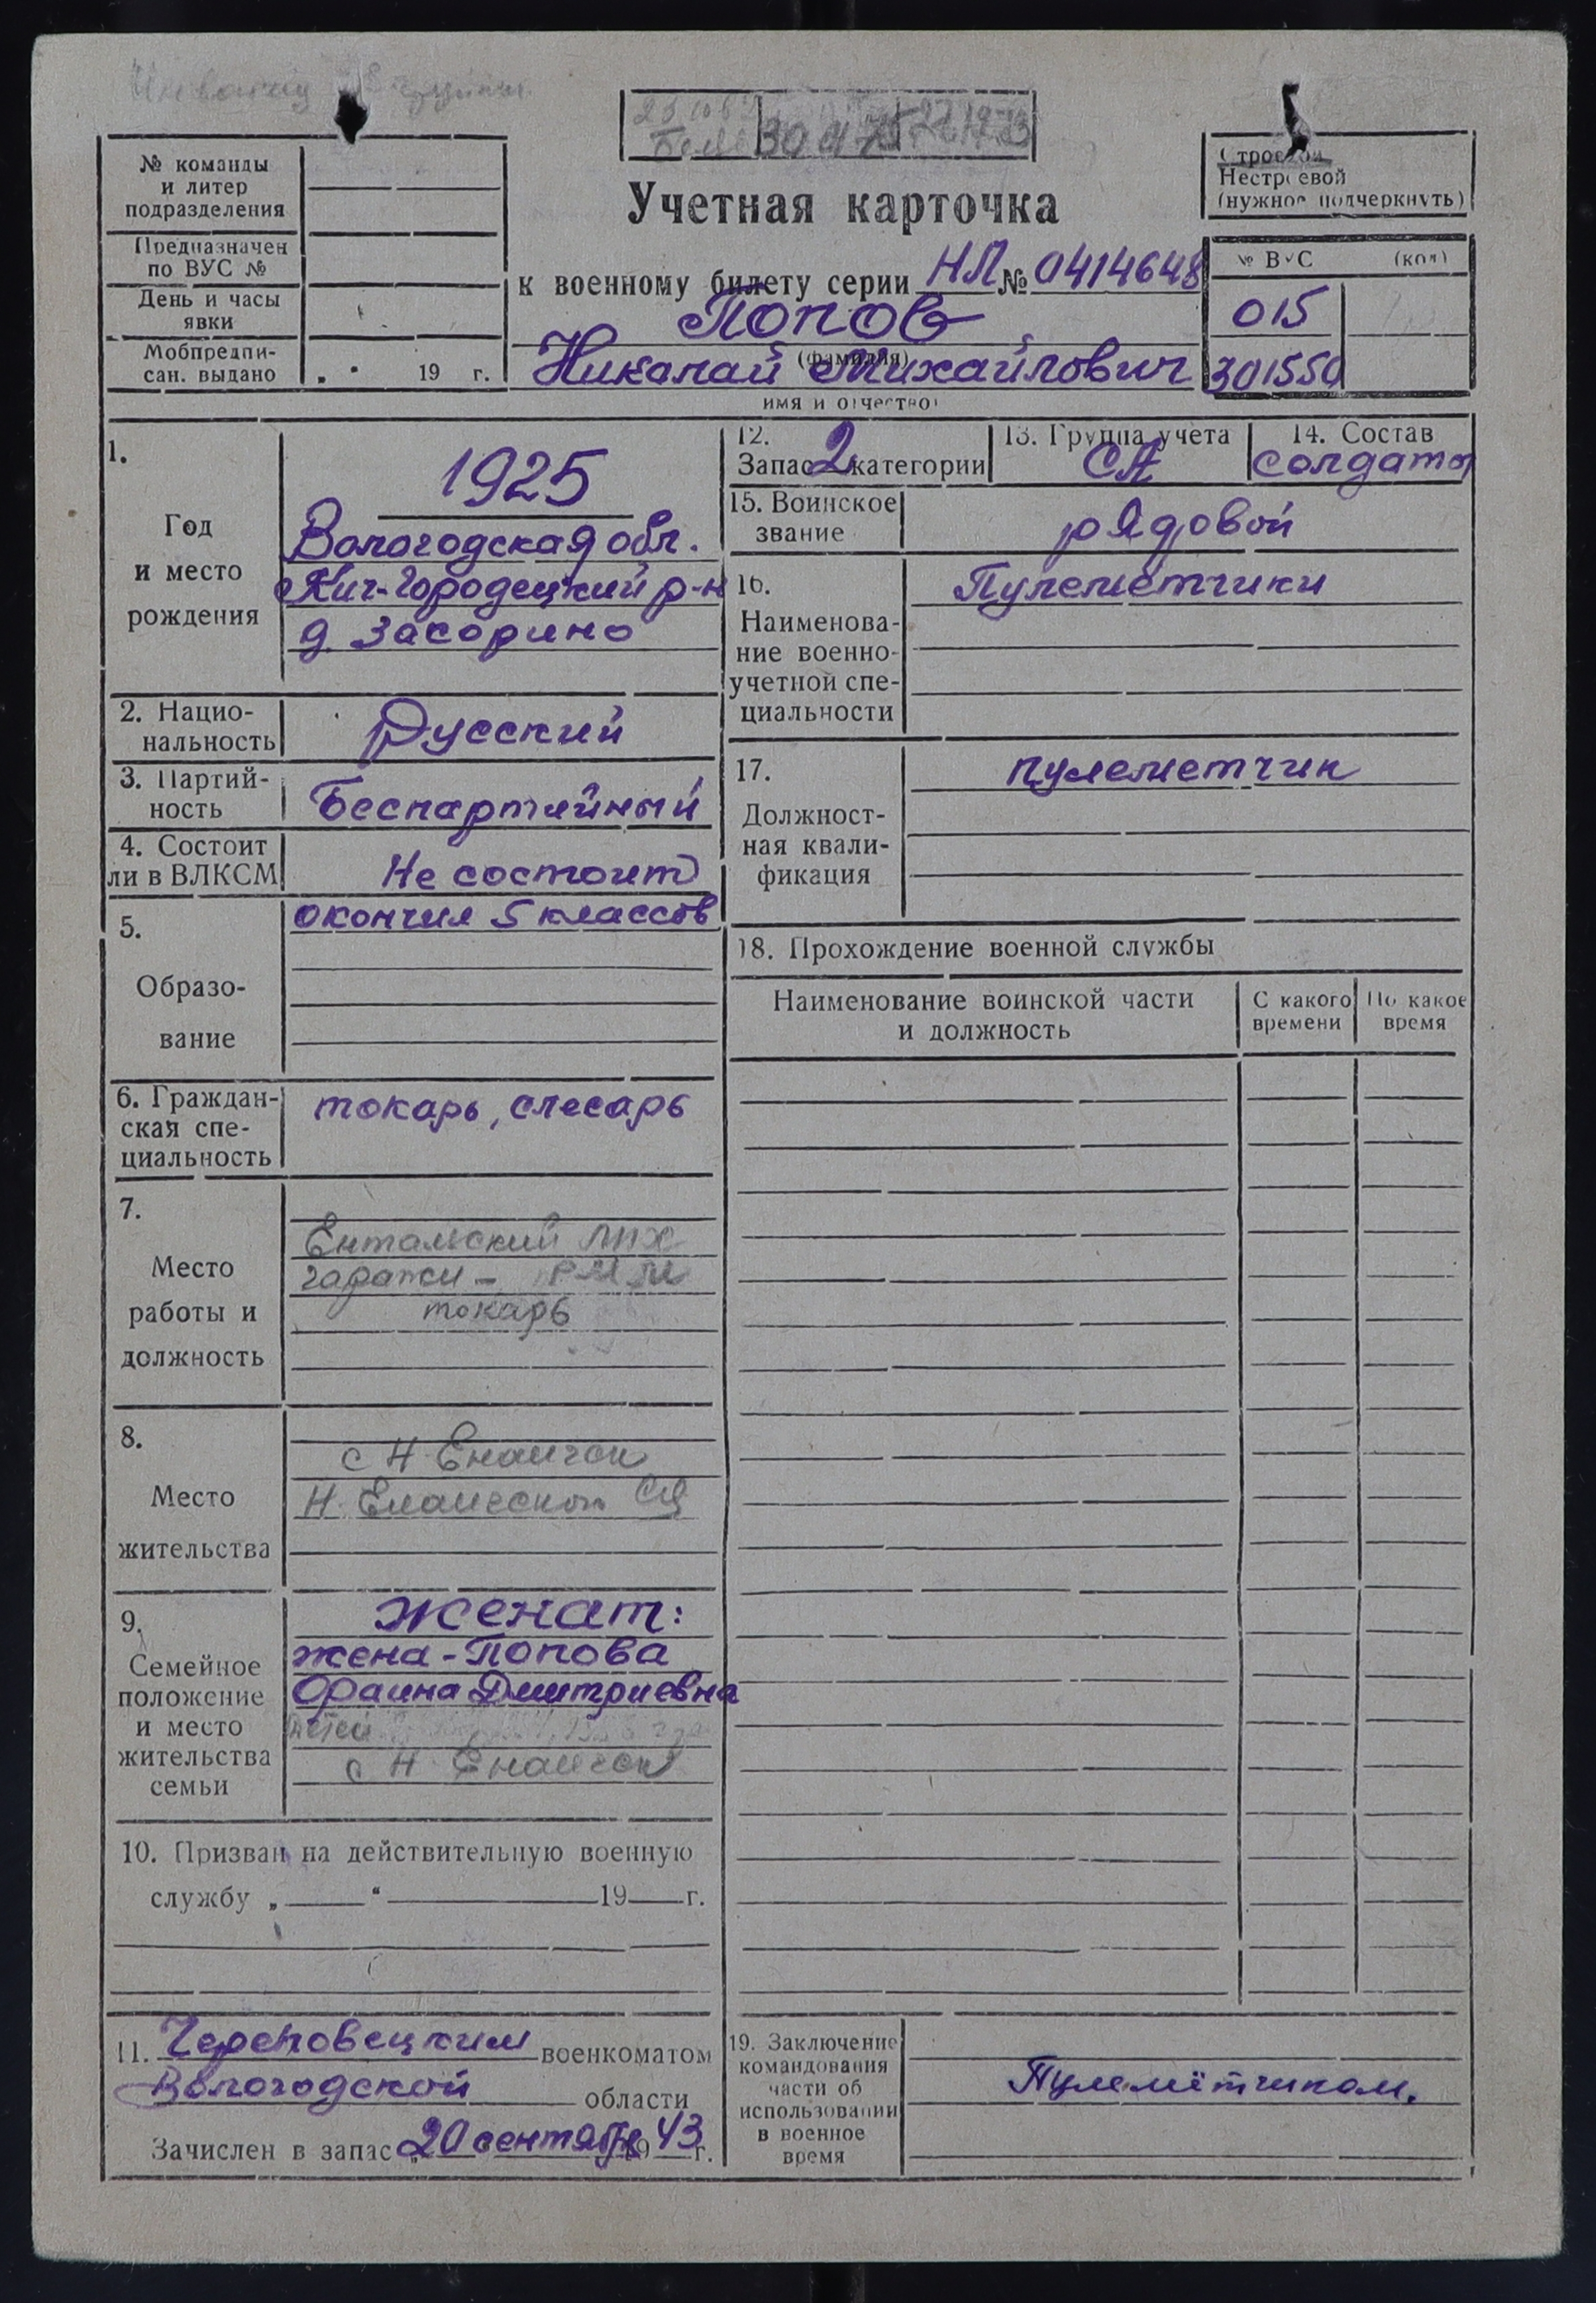 Инвалид группы
30 4 75
№ команды
и литер
подразделения
Предназначен
по ВУС №
День и часы
явки
Мобпредпи-
сан. выдано
„ “ 19 г.
Учетная карточка
к военному билету серии НЛ № 0414648
Попов
(фамилия)
Николай Михайлович
имя и отчество
Строевой
Нестроевой
(нужное подчеркнуть)
№ ВУС (код)
015
301550
1.
Год
и место
рождения
1925
Вологодская обл.
Кич-Городецкий р-н
д. Засорино
2. Нацио-
нальность
Русский
3. Партий-
ность
Беспартийный
4. Состоит
ли в ВЛКСМ
Не состоит
5.
Образо-
вание
окончил 5 классов
6. Граждан-
ская спе-
циальность
токарь, слесарь
7.
Место
работы и
должность
Ентальский ЛПХ
гаражи - РММ
токарь
8.
Место
жительства
с Н-Енангск
Н. Енангский с/с
9.
Семейное
положение
и место
жительства
семьи
женат:
жена - Попова
Фаина Дмитриевна
детей
с Н-Енангск
10. Призван на действительную военную
службу „ “ 19 г.
11. Череповецким военкоматом
Вологодской области
Зачислен в запас „20 сентября 1943 г.
12.
Запас 2 категории
13. Группа учета
СА
14. Состав
солдаты
15. Воинское
звание
рядовой
16.
Наименова-
ние военно-
учетной спе-
циальности
Пулеметчики
17.
Должност-
ная квали-
фикация
пулеметчик
18. Прохождение военной службы
Наименование воинской части
и должность
С какого
времени
По какое
время
19. Заключение
командования
части об
использовании
в военное
время
Пулемётчиком.